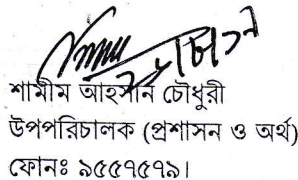 শামীম আহসান চৌধুরী
উপপরিচালক (প্রশাসন ও অর্থ)
ফোনঃ ৯৫৫৭৫৭৯।